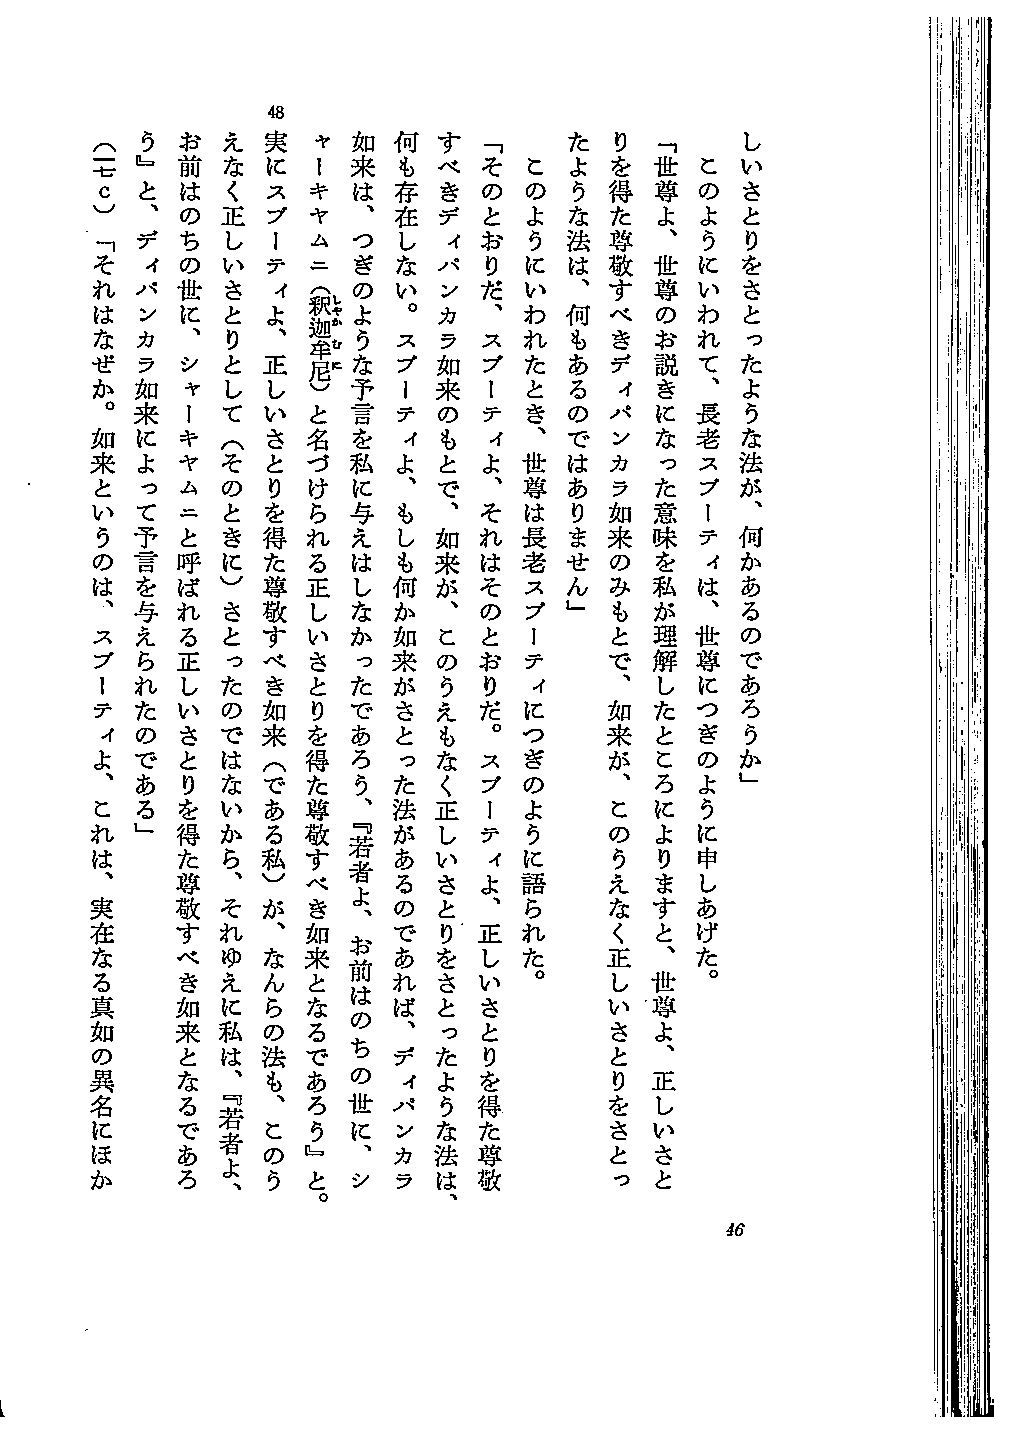 しいさとりをさとったような法が、何かあるのであろうか」
このようにいわれて、長老スブーティは、世尊につぎのように申しあげた。
「世尊よ、世尊のお説きになった意味を私が理解したところによりますと、世尊よ、正しいさと
りを得た尊敬すべきディパンカラ如来のみもとで、如来が、このうえなく正しいさとりをさとっ
たような法は、何もあるのではありません」
このようにいわれたとき、世尊は長老スブーティにつぎのように語られた。
「そのとおりだ、スブーティよ、それはそのとおりだ。スブーティよ、正しいさとりを得た尊敬
すべきディパンカラ如来のもとで、如来が、このうえもなく正しいさとりをさとったような法は、
何も存在しない。スブーティよ、もしも何か如来がさとった法があるのであれば、ディパンカラ
如来は、つぎのような予言を私に与えはしなかったであろう、『若者よ、お前はのちの世に、シ
ャーキャムニ(釈迦牟尼)と名づけられる正しいさとりを得た尊敬すべき如来となるであろう』と。
しゃかむに
48
実にスブーティよ、正しいさとりを得た尊敬すべき如来(である私)が、なんらの法も、このう
えなく正しいさとりとして(そのときに)さとったのではないから、それゆえに私は、『若者よ、
お前はのちの世に、シャーキャムニと呼ばれる正しいさとりを得た尊敬すべき如来となるであろ
う』と、ディパンカラ如来によって予言を与えられたのである」
(一七c)「それはなぜか。如来というのは、スブーティよ、これは、実在なる真如の異名にほか
46